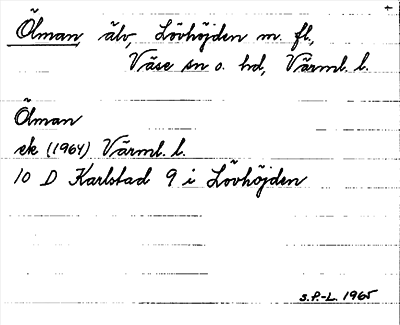 Ölman, älv, Lövhöjden m. fl.,
Väse sn o. hd, Värml. l.
Ölman
ek (1964) Värml. l.
10 D Karlstad 9 i Lövhöjden
S.P.-L. 1965